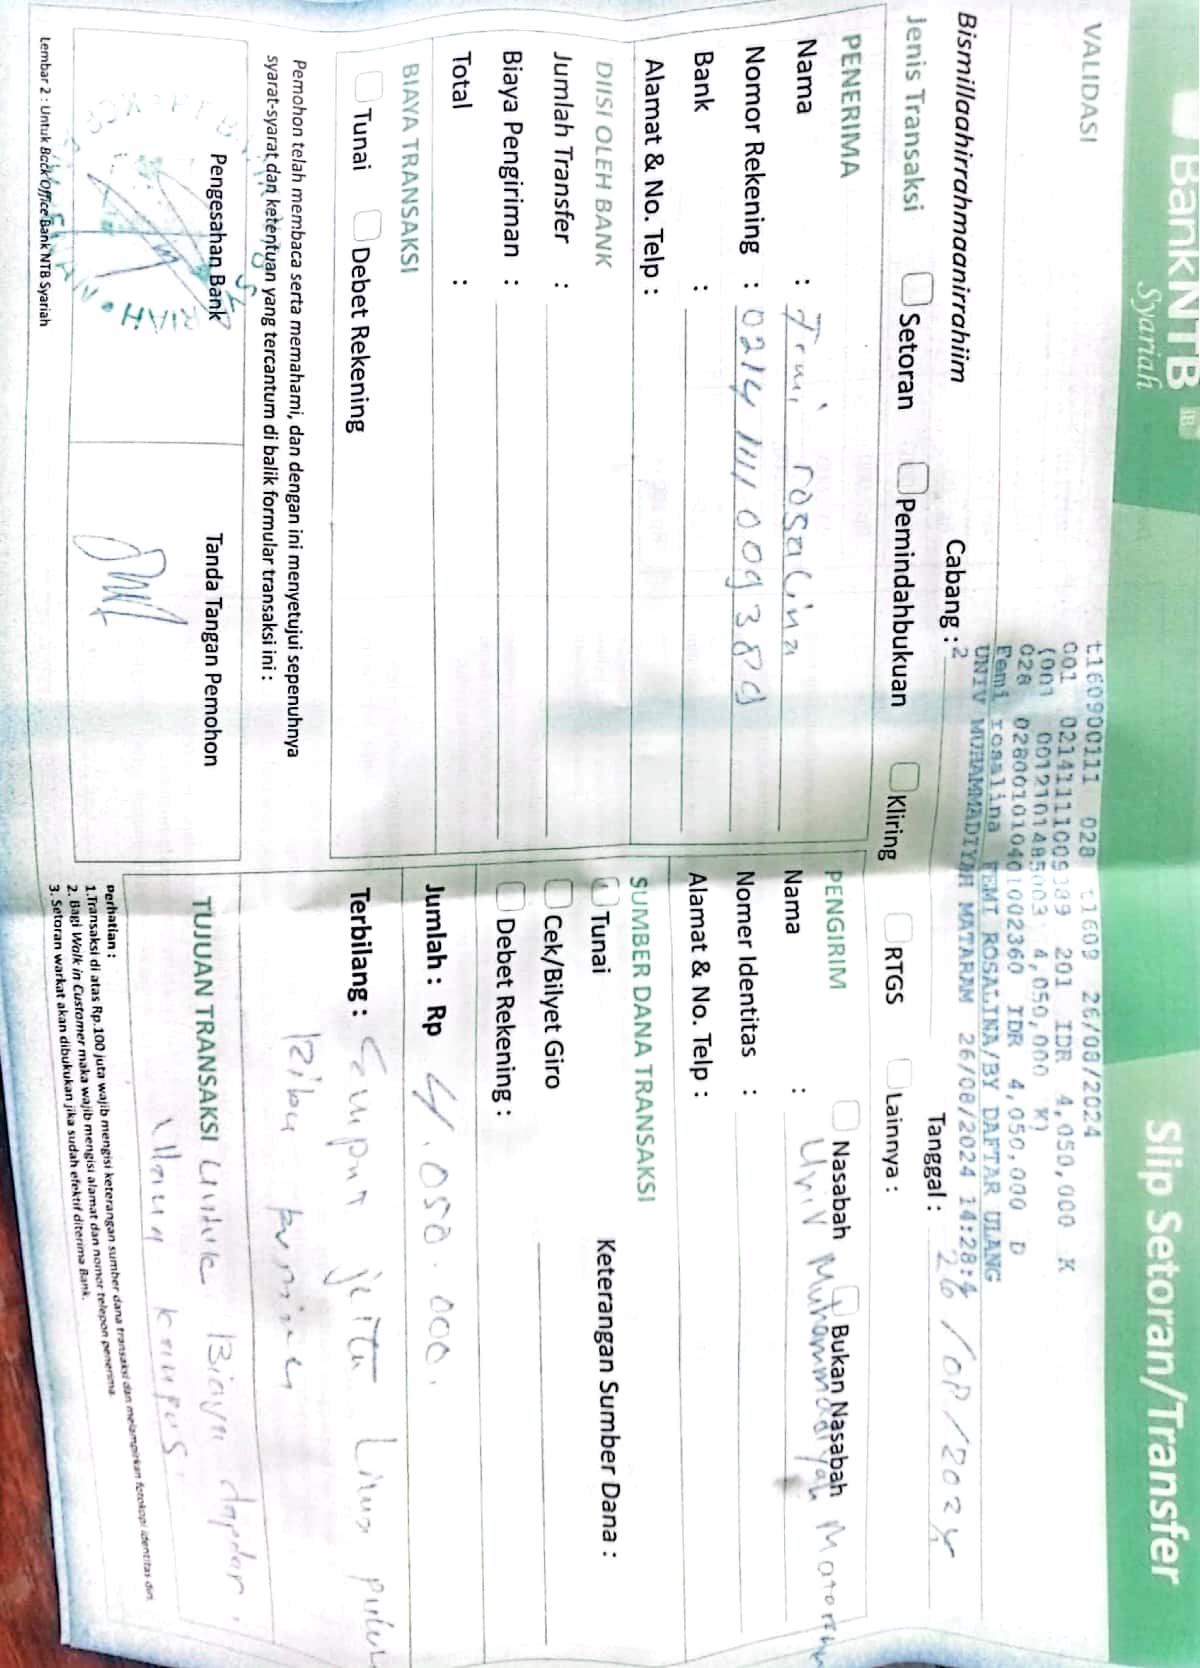 BankNTB
Syariah
Slip Setoran/Transfer
VALIDASI
t160900111 028 t1609 26/08/2024
001 02141111009389 201 IDR 4,050,000 K
(001 0012101485003 4,050,000 K)
028 028001010401002360 IDR 4,050,000 D
Femi rosalina FEMI ROSALINA/BY DAFTAR ULANG
UNIV MUHAMMADIYAH MATARAM 26/08/2024 14:28:4
2
Bismillaahirrahmaanirrahiim
Cabang :
Tanggal : 26/08/2024
Jenis Transaksi Setoran Pemindahbukuan Kliring RTGS Lainnya :
PENERIMA
Nama : Femi rosalina
Nomor Rekening : 0214 1111 009389
Bank :
Alamat & No. Telp :
PENGIRIM Nasabah Bukan Nasabah
Nama : Univ Muhammadiyah Mataram
Nomer Identitas :
Alamat & No. Telp :
DIISI OLEH BANK
Jumlah Transfer :
Biaya Pengiriman :
Total :
SUMBER DANA TRANSAKSI
Tunai Keterangan Sumber Dana :
Cek/Bilyet Giro
Debet Rekening :
BIAYA TRANSAKSI
Tunai Debet Rekening
Jumlah : Rp 4.050.000.
Terbilang : Empat juta Lima puluh
Ribu rupiah
Pemohon telah membaca serta memahami, dan dengan ini menyetujui sepenuhnya
syarat-syarat dan ketentuan yang tercantum di balik formular transaksi ini :
Pengesahan Bank
Tanda Tangan Pemohon
TUJUAN TRANSAKSI Untuk Biaya daftar
Ulang kampus
Perhatian :
1.Transaksi di atas Rp.100 juta wajib mengisi keterangan sumber dana transaksi dan melampirkan fotokopi identitas diri.
2. Bagi Walk in Customer maka wajib mengisi alamat dan nomor telepon penerima.
3. Setoran warkat akan dibukukan jika sudah efektif diterima Bank.
Lembar 2 : Untuk Back Office Bank NTB Syariah